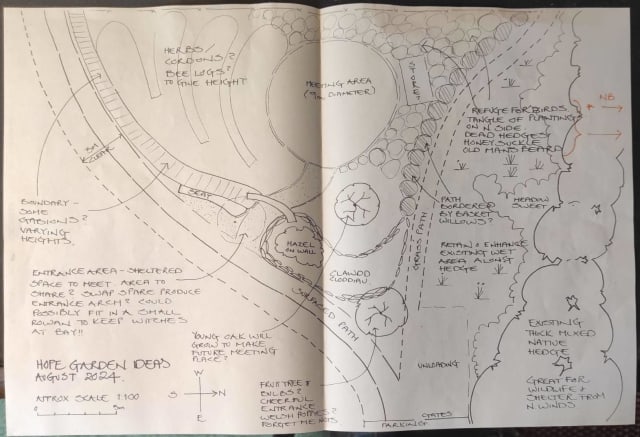 HERBS/
CORDONS?
BEE LOGS?
TO GIVE HEIGHT
MEETING AREA
DIAMETER)
STORE?
NB
REFUGE FOR BIRDS.
TANGLE OF PLANTING
ON N SIDE
DEAD HEDGES,
HONEYSUCKLE
OLD MANS BEARD
3M
BOUNDARY -
SOME
GABIONS?
VARYING
HEIGHTS.
SEAT
HAZEL
ON WALL
PATH
BORDERED
BY BASKET
WILLOWS?
MEADOW
SWEET
GRASS PATH
RETAIN & ENHANCE
EXISTING WET
AREA ALONG
HEDGE
CLAWDD
CLODDIAU
ENTRANCE AREA - SHELTERED
SPACE TO MEET. AREA TO
SHARE? SWAP SPARE PRODUCE
ENTRANCE ARCH? COULD
POSSIBLY FIT IN A SMALL
ROWAN TO KEEP WITCHES
AT BAY!!
SURFACED PATH
YOUNG OAK WILL
GROW TO MAKE
FUTURE MEETING
PLACE?
EXISTING
THICK MIXED
NATIVE
HEDGE
GREAT FOR
WILDLIFE &
SHELTER FROM
N. WINDS
HOPE GARDEN IDEAS
AUGUST 2024.
APPROX SCALE 1:100
0
5m
W
S
N
E
FRUIT TREE &
BULBS?
CHEERFUL
ENTRANCE
WELSH POPPIES?
FORGET ME NOTS
UNLOADING
GATES
PARKING